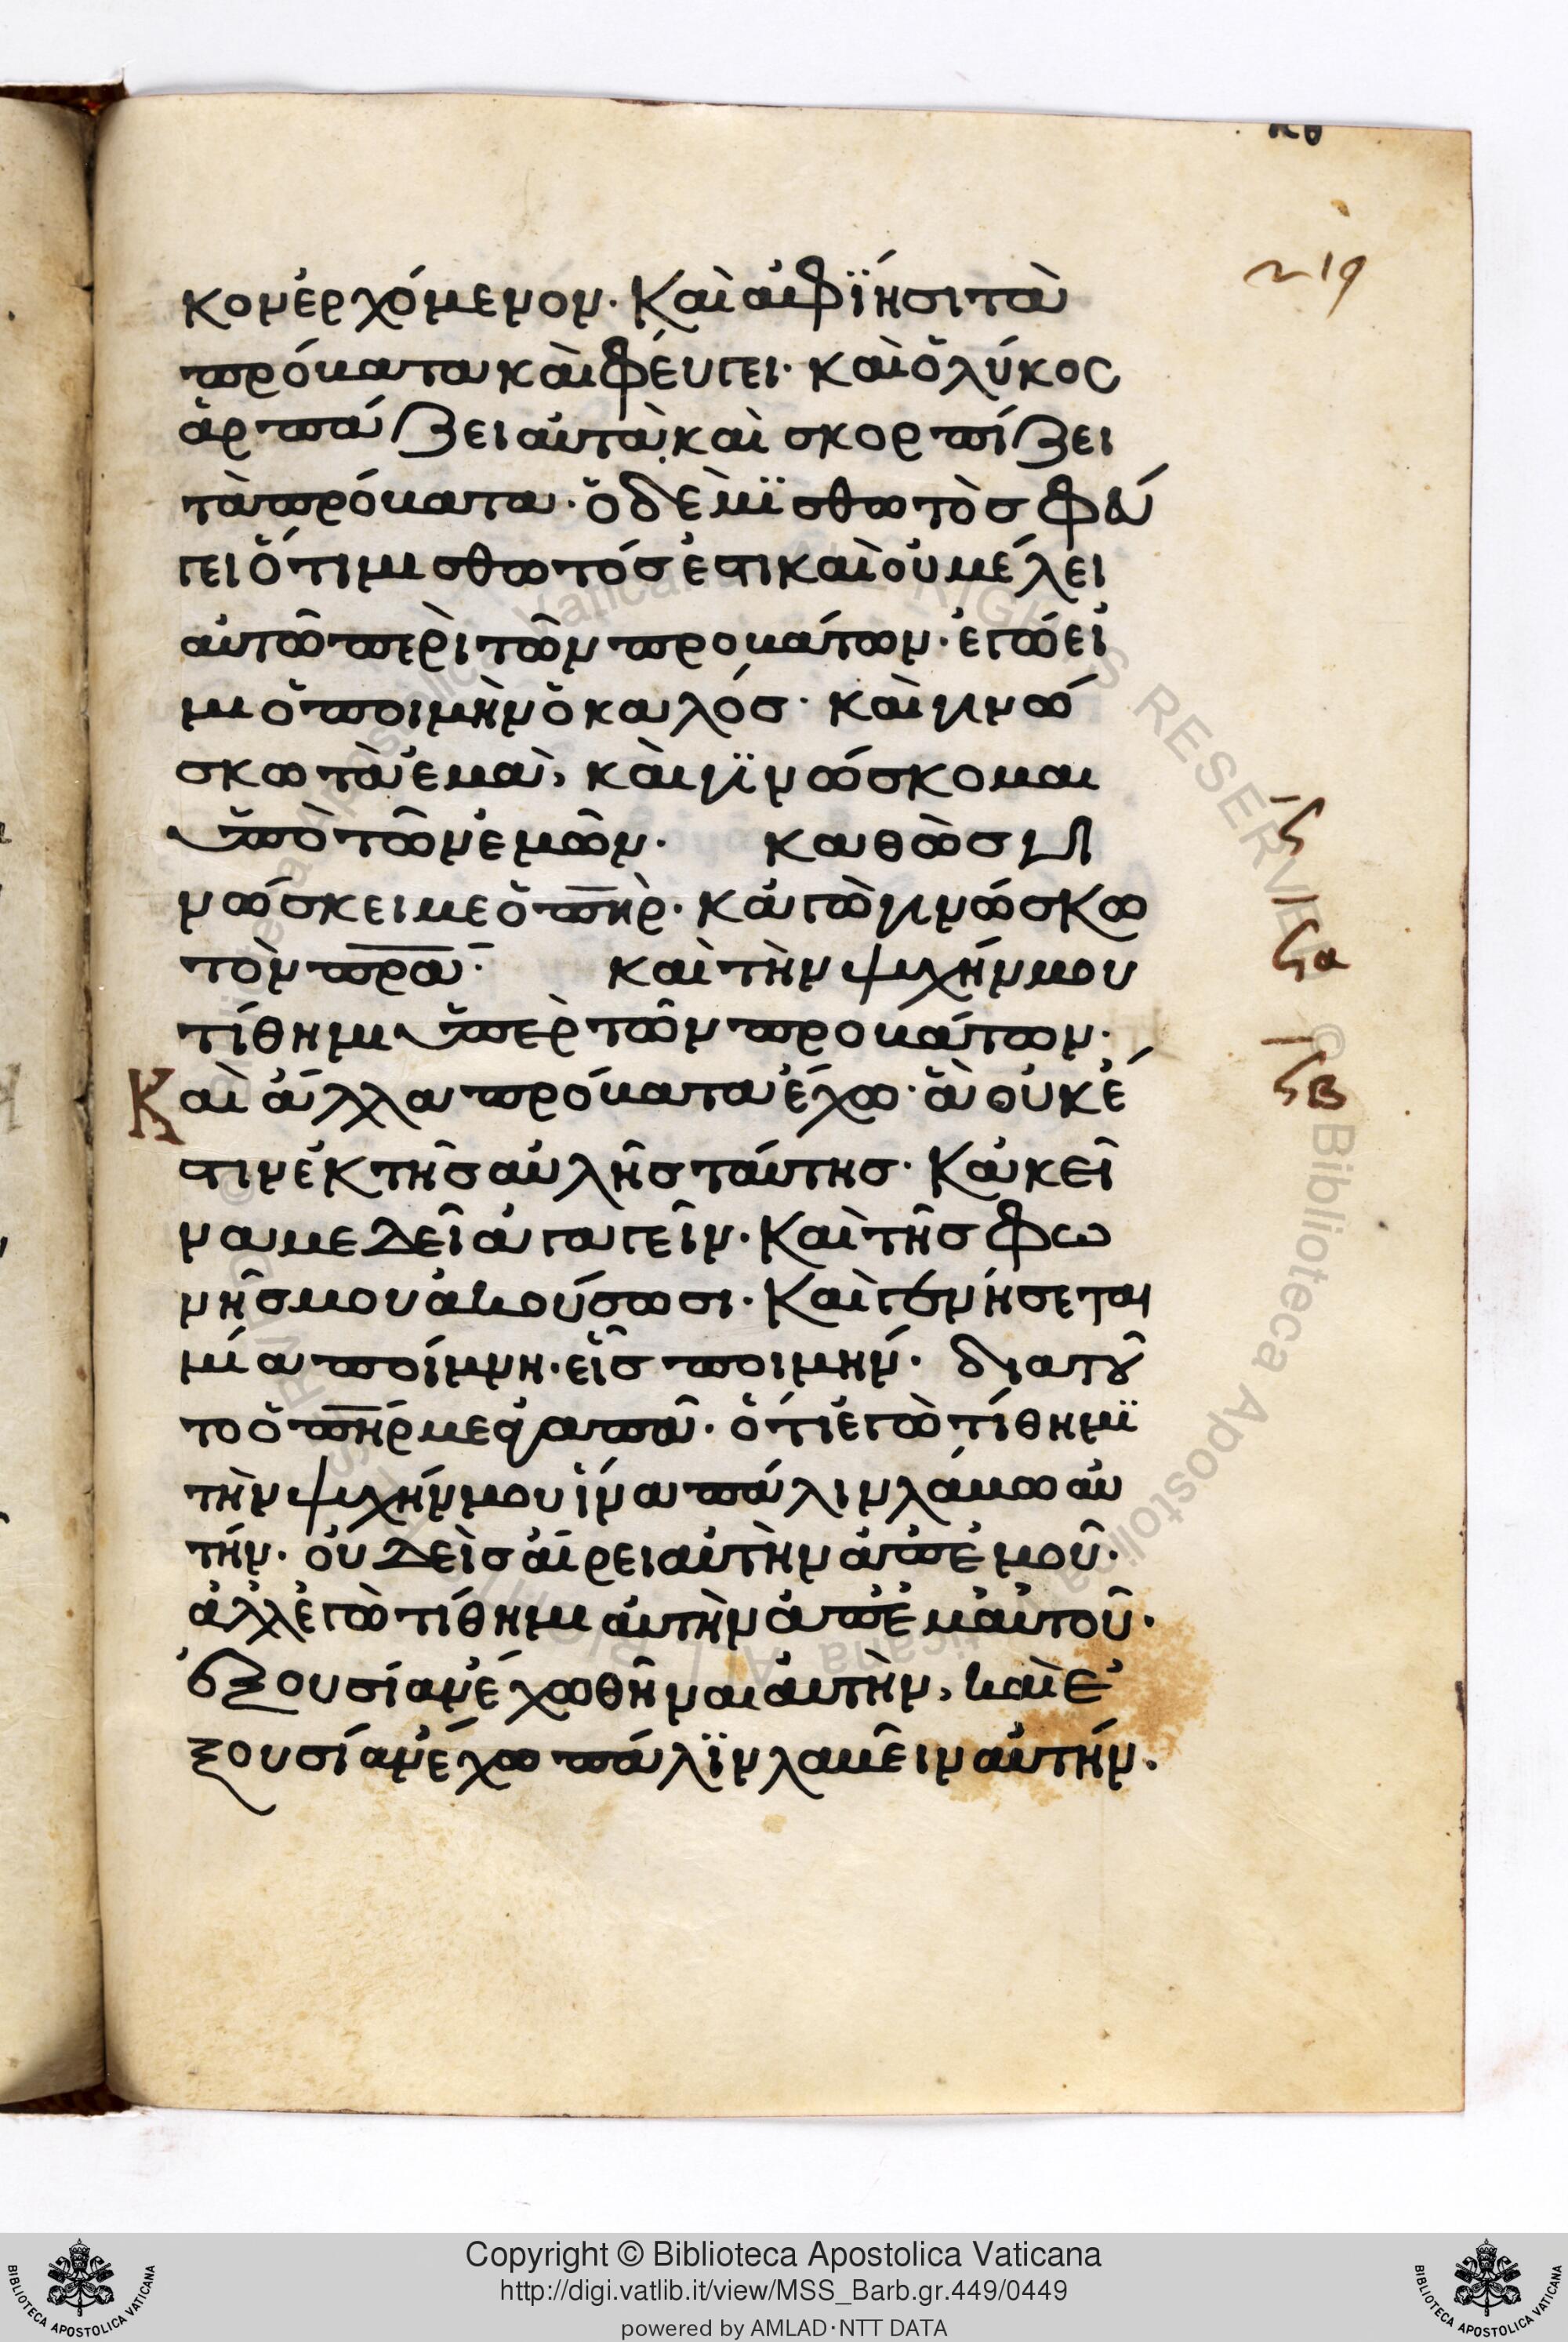 κθ
219
κον ἐρχόμενον· Καὶ ἀφϊησι τὰ
πρόβατα καὶ φέυγει· καὶ ὁ λύκος
ἁρπάζει αὐτὰ, καὶ σκορπίζει
τὰ πρόβατα· ὁ δὲ μϊσθωτὸσ φεύ
γει ὅτι μισθωτόσ ἐστι καὶ οὐ μέλει
αὐτῶ περὶ τῶν προβάτων· ἐγώ εἰ
μι ὁ ποιμὴν ὁ καλόσ· καὶ γινώ
σκω τὰ ἐμὰ, καὶ γϊνώσκομαι
ὑπὸ τῶν ἐμῶν· καθὼσ γι
νώσκει με ὁ πηρ· κἀγὼ γινώσκω
τὸν πρα· καὶ τὴν ψυχήν μου
τίθημι ὑπὲρ τῶν προβάτων·
Καὶ ἄλλα πρόβατα ἔχω· ἃ οὐκ ἔ
στιν ἐκ τῆσ αὐλῆσ ταύτησ· Κἀκεῖ
να με δεῖ ἀγαγεῖν· Καὶ τῆσ φω
νῆσ μου ἀκούσωσι· Καὶ γενήσεται
μία ποίμνη· εἷσ ποιμήν· διατοῦ
το ὁ πηρ με ἀγαπᾶ· ὅτι ἐγὼ τίθημϊ
τὴν ψυχήν μου ἵνα πάλιν λάβω αὐ
τήν· οὐδεὶσ αἴρει αὐτὴν ἀπ' ἐμοῦ·
ἀλλ' ἐγὼ τίθημι ἀυτὴν ἀπ' ἐμαυτοῦ·
ἐξουσίαν ἔχω θῆναι ἀυτὴν, καὶ ἐ
ξουσίαν ἔχω πάλϊν λαβεῖν αὐτήν·
ϟ
ϟα
ϟβ
Copyright © Biblioteca Apostolica Vaticana
http://digi.vatlib.it/view/MSS_Barb.gr.449/0449
powered by AMLAD·NTT DATA
BIBLIOTECA APOSTOLICA VATICANA
BIBLIOTECA APOSTOLICA VATICANA